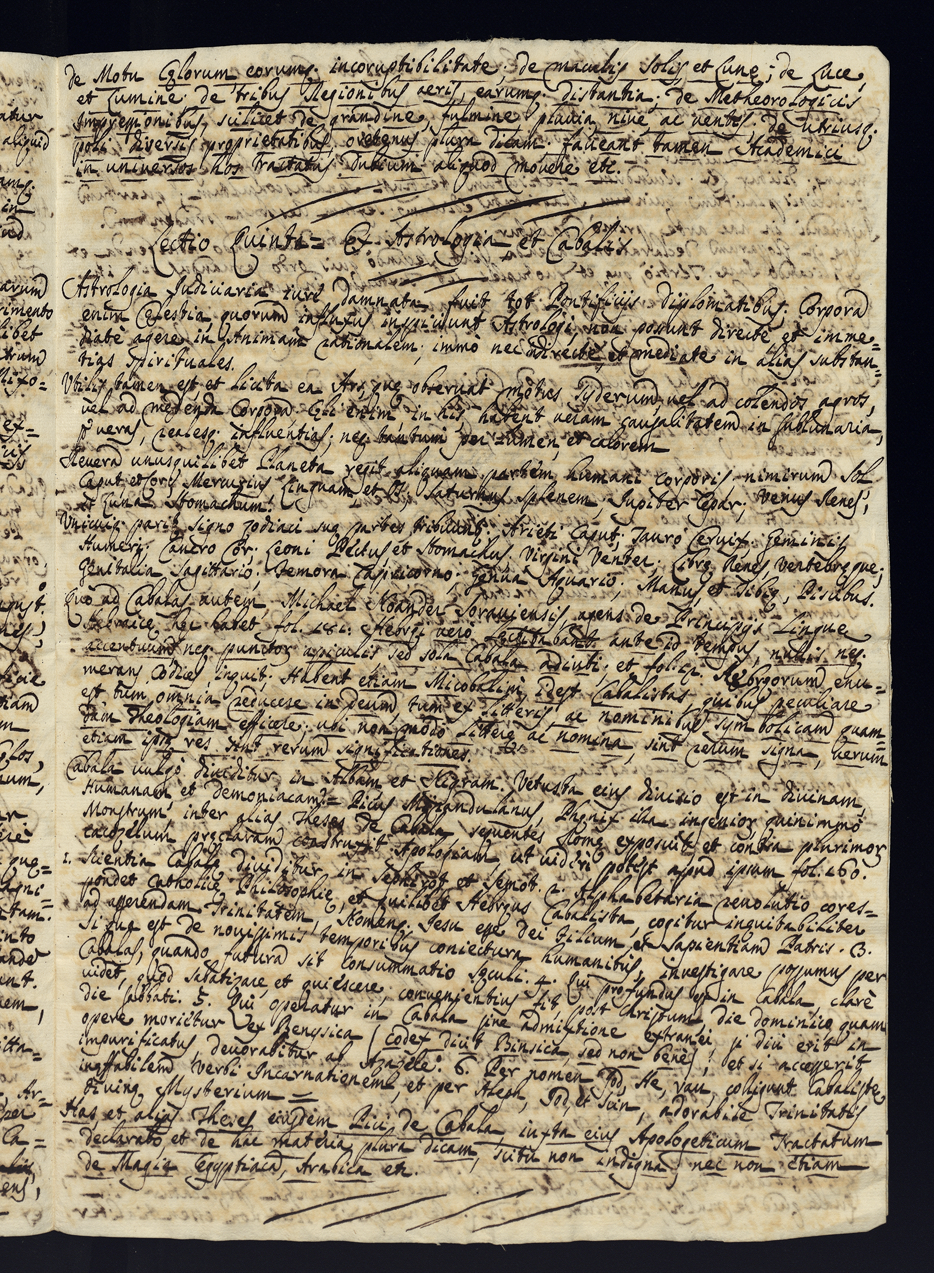 de Motu Cęlorum eorumq; incoruptibilitate; de maculis Solis et Lunę; de Luce,
et Lumine; de tribus Regionibus aeris, earumq; distantia; de Metheorologicis
Impressionibus, scilicet de grandine, fulmine, pluvia, nive, ac ventis. De utriusq;
poli diversis proprietatibus, plura dicam. faveant tamen Academici
in universos hos Tractatus Dubium aliquod movere etc.
Lectio Quinta = Ex Astrologia et Cabalis
Astrologia Judiciaria iure damnata fuit tot Pontificijs Diplomatibus. Corpora
enim Cęlestia quorum influxus inspiciunt Astrologi, non possunt directè et imme=
diatè agere in Animam rationalem: immò nec indirectè, et mediatè in alias substan=
tias Spirituales.
Utilis tamen est et licita ea Ars, quę observat motus Syderum vel ad colendos agros,
vel ad medenda Corpora. Cęli enim in his habent veram causalitatem in sublunaria,
et veras, realesq; influentias; neq; tantum per Lumen, et calorem
Revera unusquilibet Planeta regit aliquam partem humani corporis nimirum Sol
Caput et Cor; Mercurius Linguam et Saturnus splenem, Jupiter Epar; Venus Renes;
et Luna Stomachum.
Unicuiq; parit. signo Zodiaci suę partes tribuunt. Arieti Caput; Tauro Cervix. Geminis
Humeri; Cancro Cor. Leoni Pectus et Stomachus. Virgini Venter; Librę Renes, Vertebręque;
Genitalia Sagittario. Femora Capricorno. Genua Aquario; Manus et Tibię, Piscibus.
Quo ad Cabalas autem Michael Neander Soraviensis, agens de Principijs Linguę
Hebraicę, hęc habet fol. 181. Hebręi vero Legitabant ante id tempus, nullis neq;
accentuum neq; punctor. apiculis sed sola Cabala adiuti; et fol. Hebręorum enu=
merans Codices inquit; Habent etiam Micobalim idest Cabalistas, quibus peculiare
est tum omnia reducere in Deum, tum ex Litteris ac nominibus symbolicam quam=
dam Theologiam efficere: ubi non modo Litterę ac nomina, sint rerum signa, verum
etiam ipsę res sint rerum significationes.
Cabala vulgò dividitur in Albam et Nigram. Vetusta eius divisio est in divinam
Humanam et Demoniacam. Picus Mirandulanus, Phęnix ille ingenior. quinimmò
Monstrum, inter alias Theses de Cabala sequentes Romę exposuit, et contra plurimor.
cacozelum pręclaram construxit Apologiam, ut videri potest apud ipsum fol. 160.
1. Scientia Cabalę dividitur in Sephirot et Semot. 2. Alphabetaria revolutio cores=
pondet Catholicę Philosophię, et quilibet Hebręus Cabalista, cogitur inevitabiliter
ad asserendam Trinitatem, Nomen Jesu esse Dei Filium, et Sapientiam Patris. 3.
Si quę est de novissimis temporibus coniectura humanibus, investigare possumus per
Cabalas, quando futura sit consummatio seculi. 4. Qui profundus est in Cabala, clarè
videt, quod sabatizare, et quiescere, convenientius sit, post Christum die dominico, quam
die sabbati. 5. Qui operatur in Cabala sine admixtione extranei si diu erit in
opere morietur ex Benysica (Codex dicit Binsica, sed non bene); et si accesserit
impurificatus devorabitur ab Azazele. 6. Per nomen Jod, He, vau, colligunt Cabalistę
inaffabilem Verbi Incarnationem, et per Aleph, Jod, et Scin, adorabile Trinitatis
Divinę Mysterium =
Has et alias Theses eiusdem Pici, de Cabala iuxta eius Apologeticum Tractatum
declarabo et de hac materia, plura dicam, scitu non indigna, nec non etiam
de Magia Egyptiaca, Arabica etc.